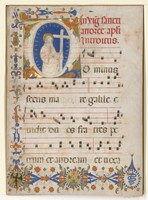 sancti
andree apli
Introitus.
Dominus
secus ma re galile e
uidit du os fra tres pe
trum et andream et uoca